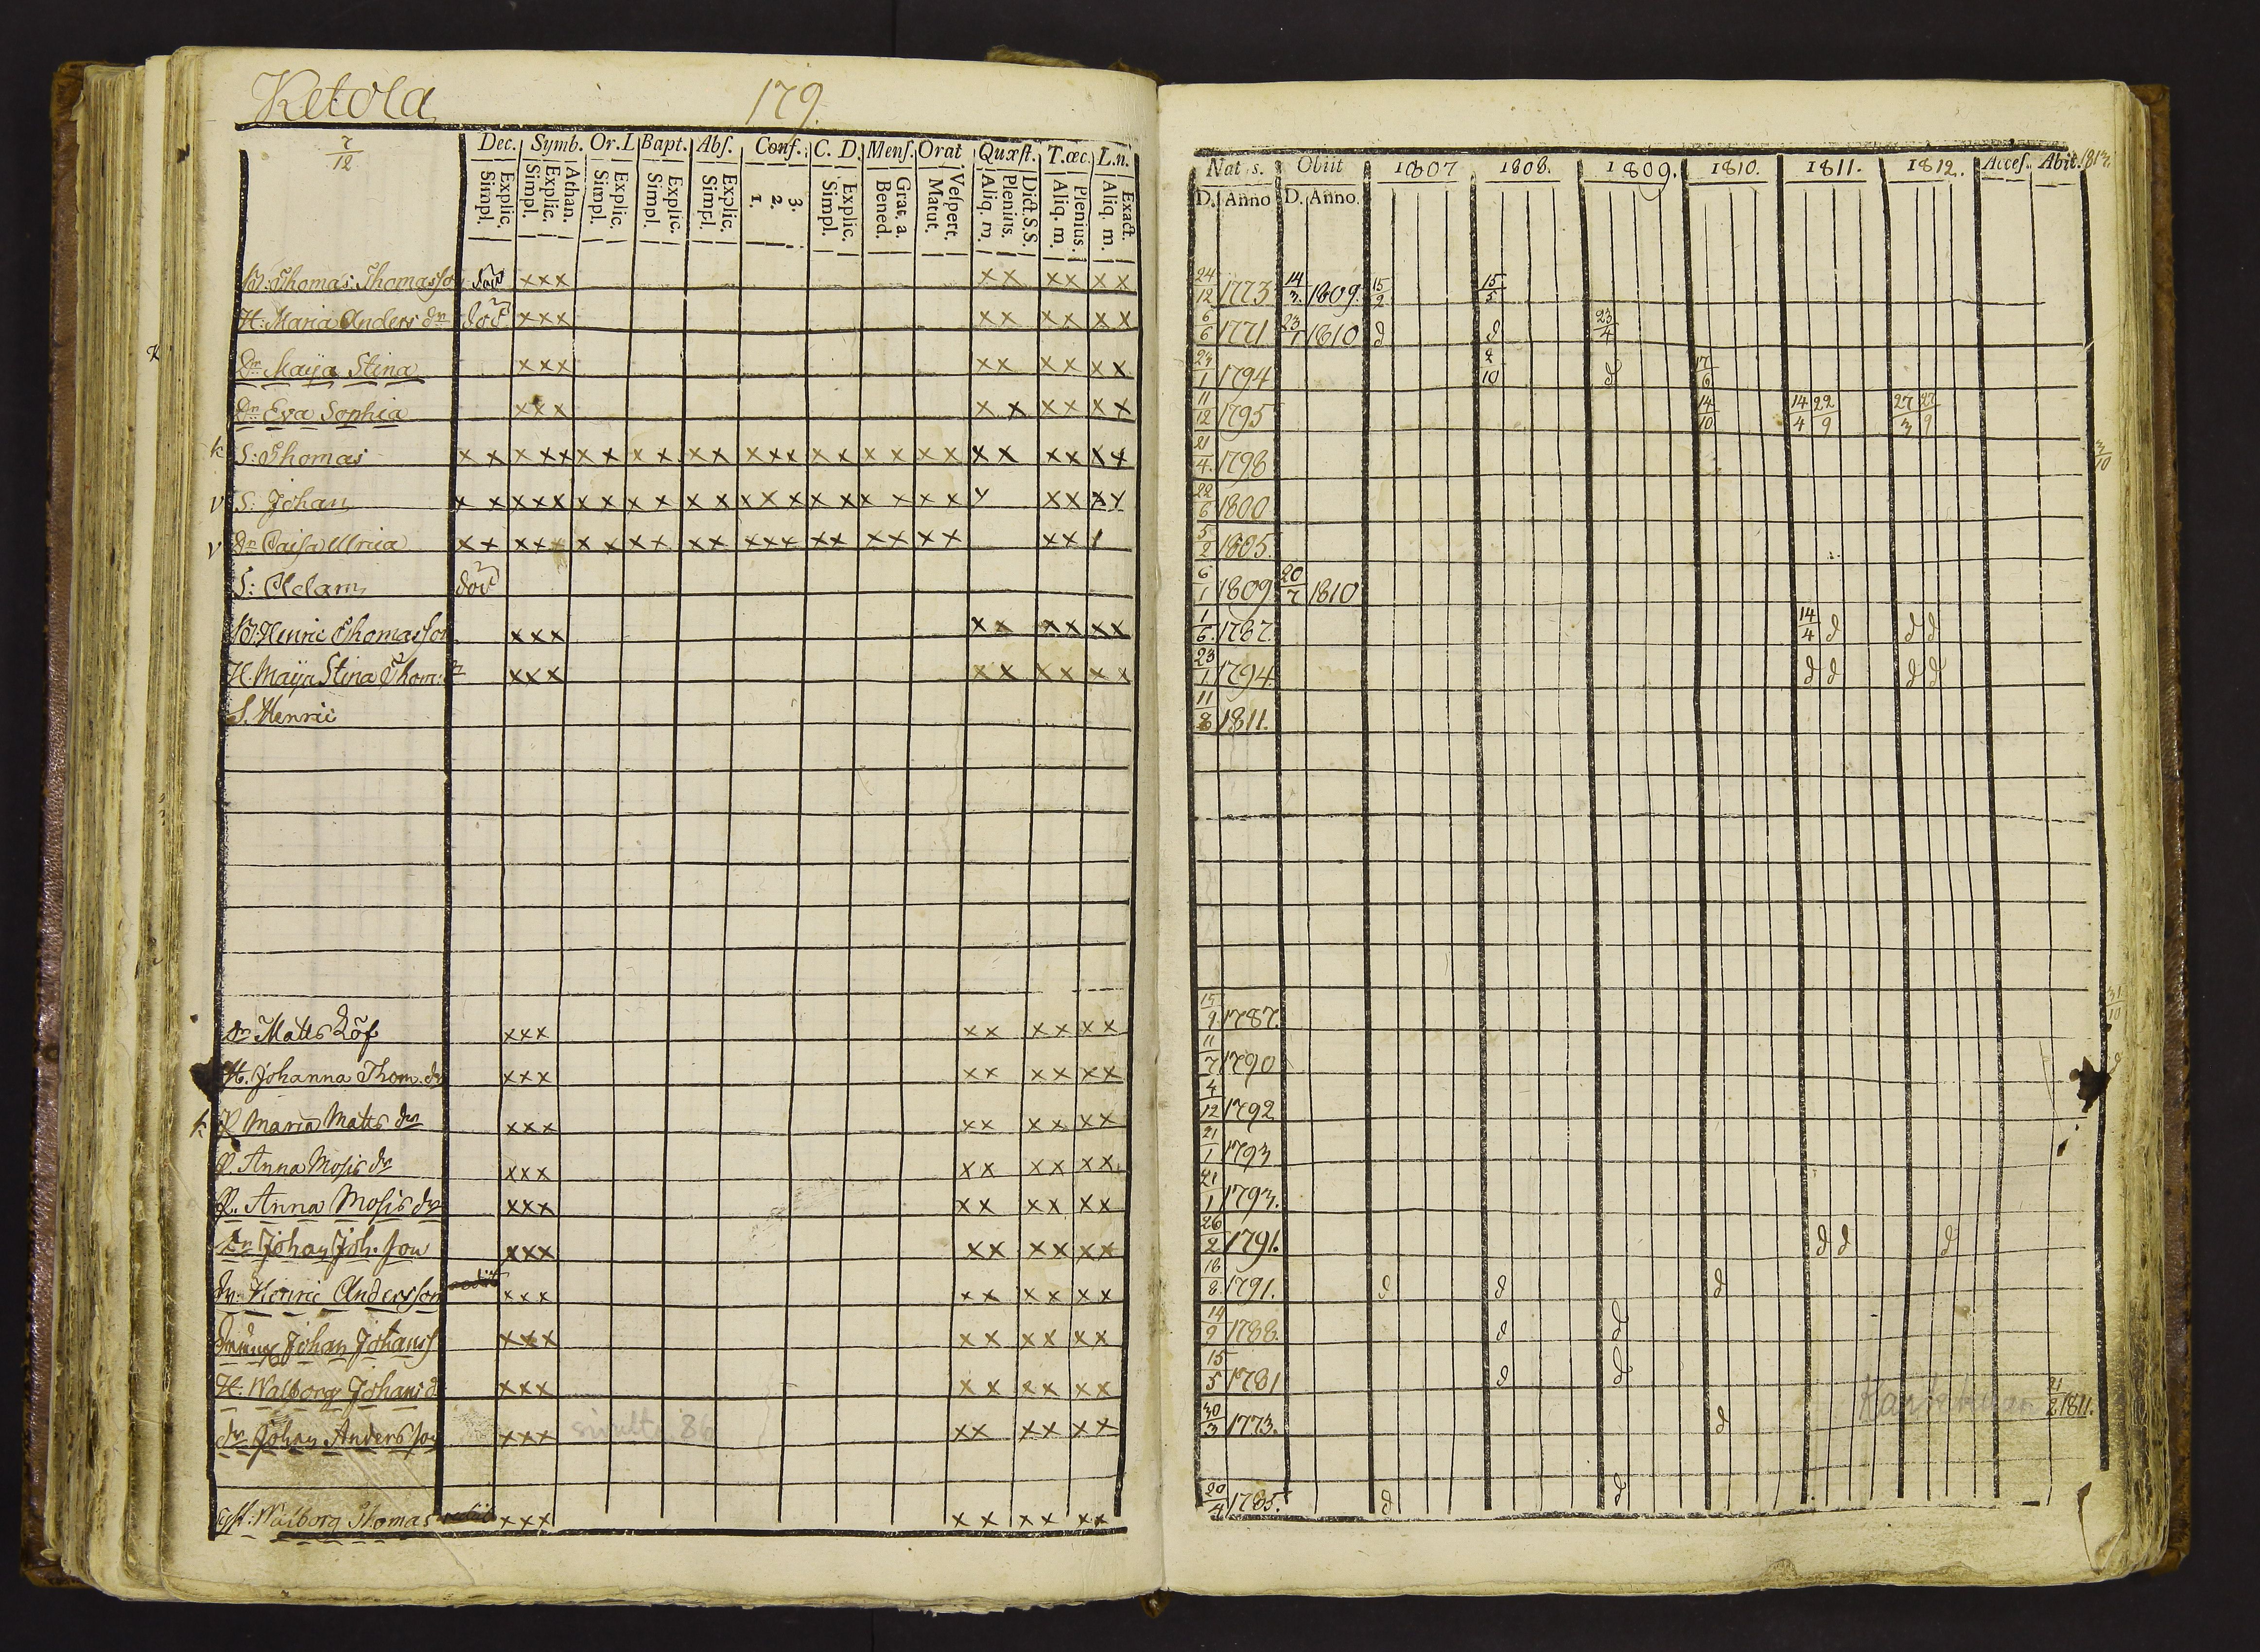 Ketola 179.
7/12
Dec. Symb. Or. L Bapt. Abſ. Conf. C. D. Menſ. Orat Quæſt. T. œc. L. n.
Explic. Simpl. Athan. Explic. Simpl. Explic. Simpl. Explic. Simpl. Explic. Simpl. 3. 2. 1. Explic. Simpl. Grat. a. Bened. Veſpert. Matut. Dict. S. S. Plenius. Aliq. m. Plenius. Aliq. m. Exact. Aliq. m.
Nat s. Obiit 1807 1808. 1809. 1810. 1811. 1812. Acceſ. Abit. 1813.
D. Anno D. Anno.
B: Thomas Thomasson död xxx xx xx xx 24/12 1773 14/3 1809 15/2 15/5
H: Maria Anders dr död xxx xx xx xx 6/6 1771 23/1 1810 d d 23/4
Dr Maija Stina xxx xx xx xx 23/1 1794 2/10 d 17/6
Dr Eva Sophia xxx xx xx xx 11/12 1795 14/10 14/4 22/9 27/3 27/9
k S: Thomas xx xxx xx xx xx xxx xx xx xx xx xx xx 21/4. 1798 3/10
v S: Johan xx xxx xx xx xx xxx xx xx xx x xx xx 22/6 1800
v Dr Caisa Ulrica xx xxx xx xx xx xxx xx xx xx xx / 5/2 1805.
S: Adam död 6/1 1809 20/7 1810
B: Henric Thomasson xxx xx xx xx 1/6. 1787. 14/4 d d d
H. Maija Stina Thom: dr xxx xx xx xx 23/1 1794. d d d d
S. Henric 11/8 1811.
dr Matts Löf xxx xx xx xx 15/9 1787. 31/10
H. Johanna Thom. dr xxx xx xx xx 11/7 1790 d
k P Maria Matts dr xxx xx xx xx 4/12 1792
P. Anna Mosis dr xxx xx xx xx 21/1 1793
P. Anna Mosis dr xxx xx xx xx 21/1 1793.
Dr Johan Joh. son xxx xx xx xx 26/2 1791. d d d
dr. Henric Andersson rediit xxx xx xx xx 18/8 1791. d d d
Johan Johanss xxx xx xx xx 14/9 1788. d d
H: Walborg Johans d xxx xx xx xx 15/5 1781 d d
dr Johan Andersson xxx xx xx xx 30/3 1773. d 21/2 1811.
Walborg Thomas rediit xxx xx xx xx 20/4 1785. d d